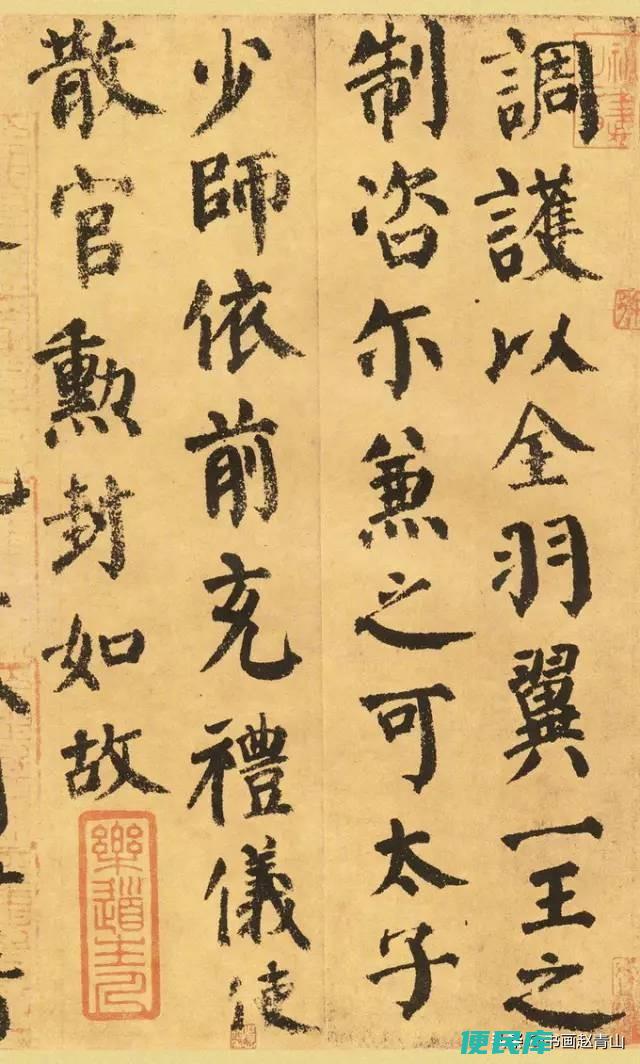 調護以全羽翼一王之
制咨尔兼之可太子
少師依前充禮儀使
散官勳封如故
樂道主人
书画赵青山
便民库